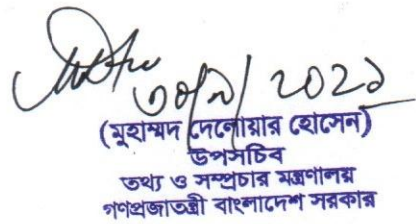 ৩০/৯/২০২১
(মুহাম্মদ দেলোয়ার হোসেন)
উপসচিব
তথ্য ও সম্প্রচার মন্ত্রণালয়
গণপ্রজাতন্ত্রী বাংলাদেশ সরকার